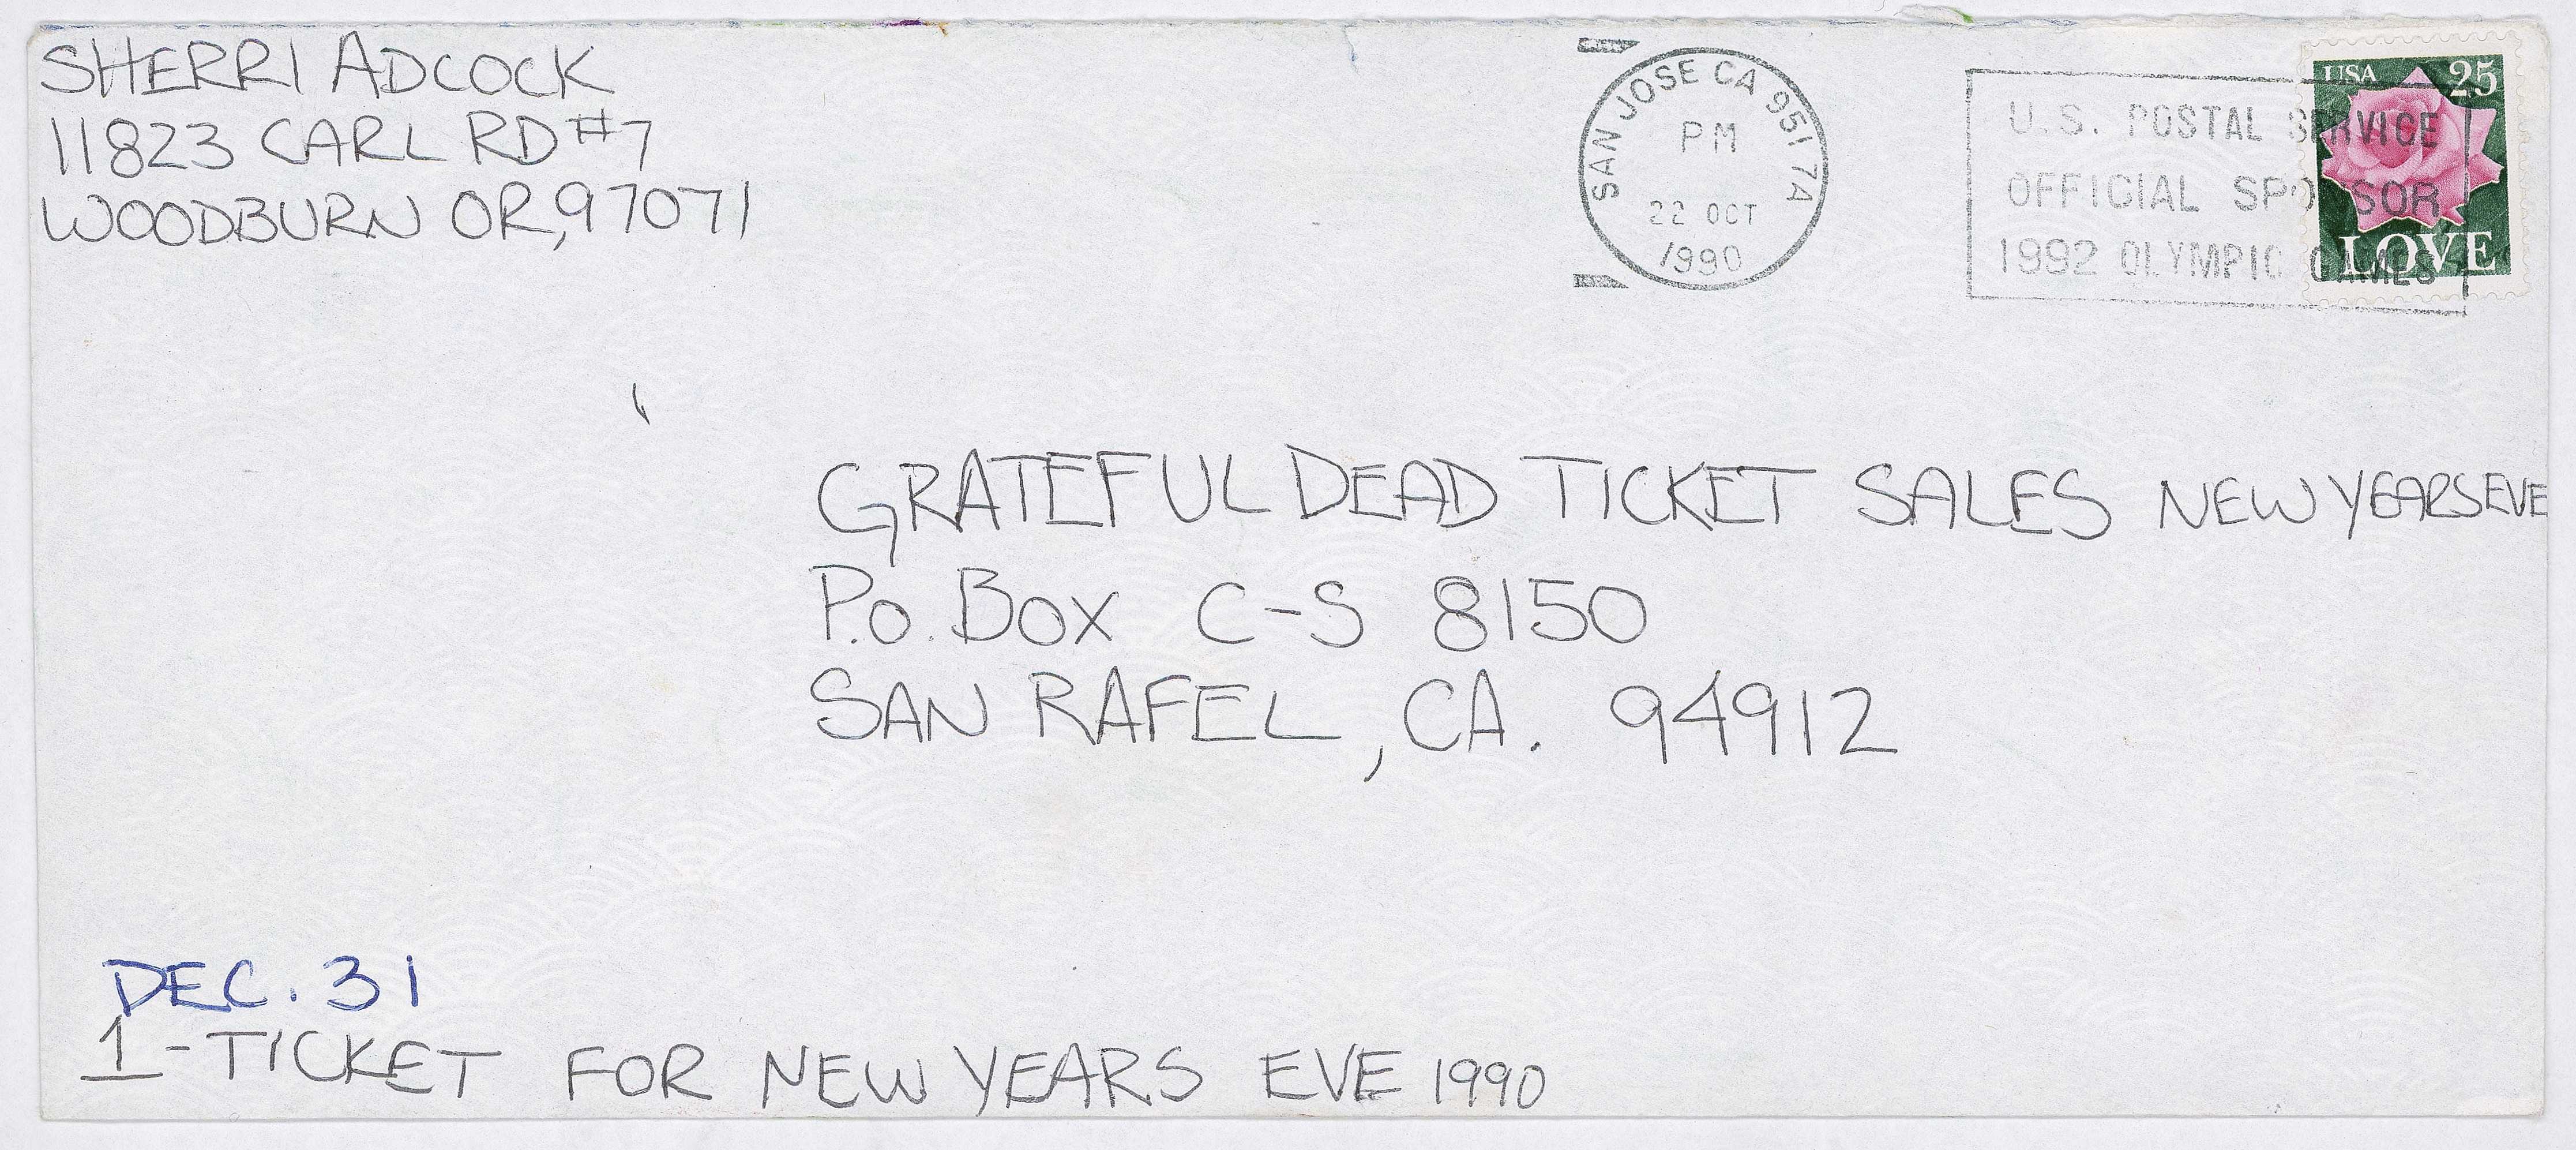 SHERRI ADCOCK
11823 CARL RD #7
WOODBURN OR, 97071
SAN JOSE CA 951 7A
PM
22 OCT
1990
U.S. POSTAL SERVICE
OFFICIAL SPONSOR
1992 OLYMPIC GAMES
USA 25
LOVE
GRATEFUL DEAD TICKET SALES NEW YEARS EVE
P.O. BOX C-S 8150
SAN RAFEL, CA. 94912
DEC. 31
1-TICKET FOR NEW YEARS EVE 1990